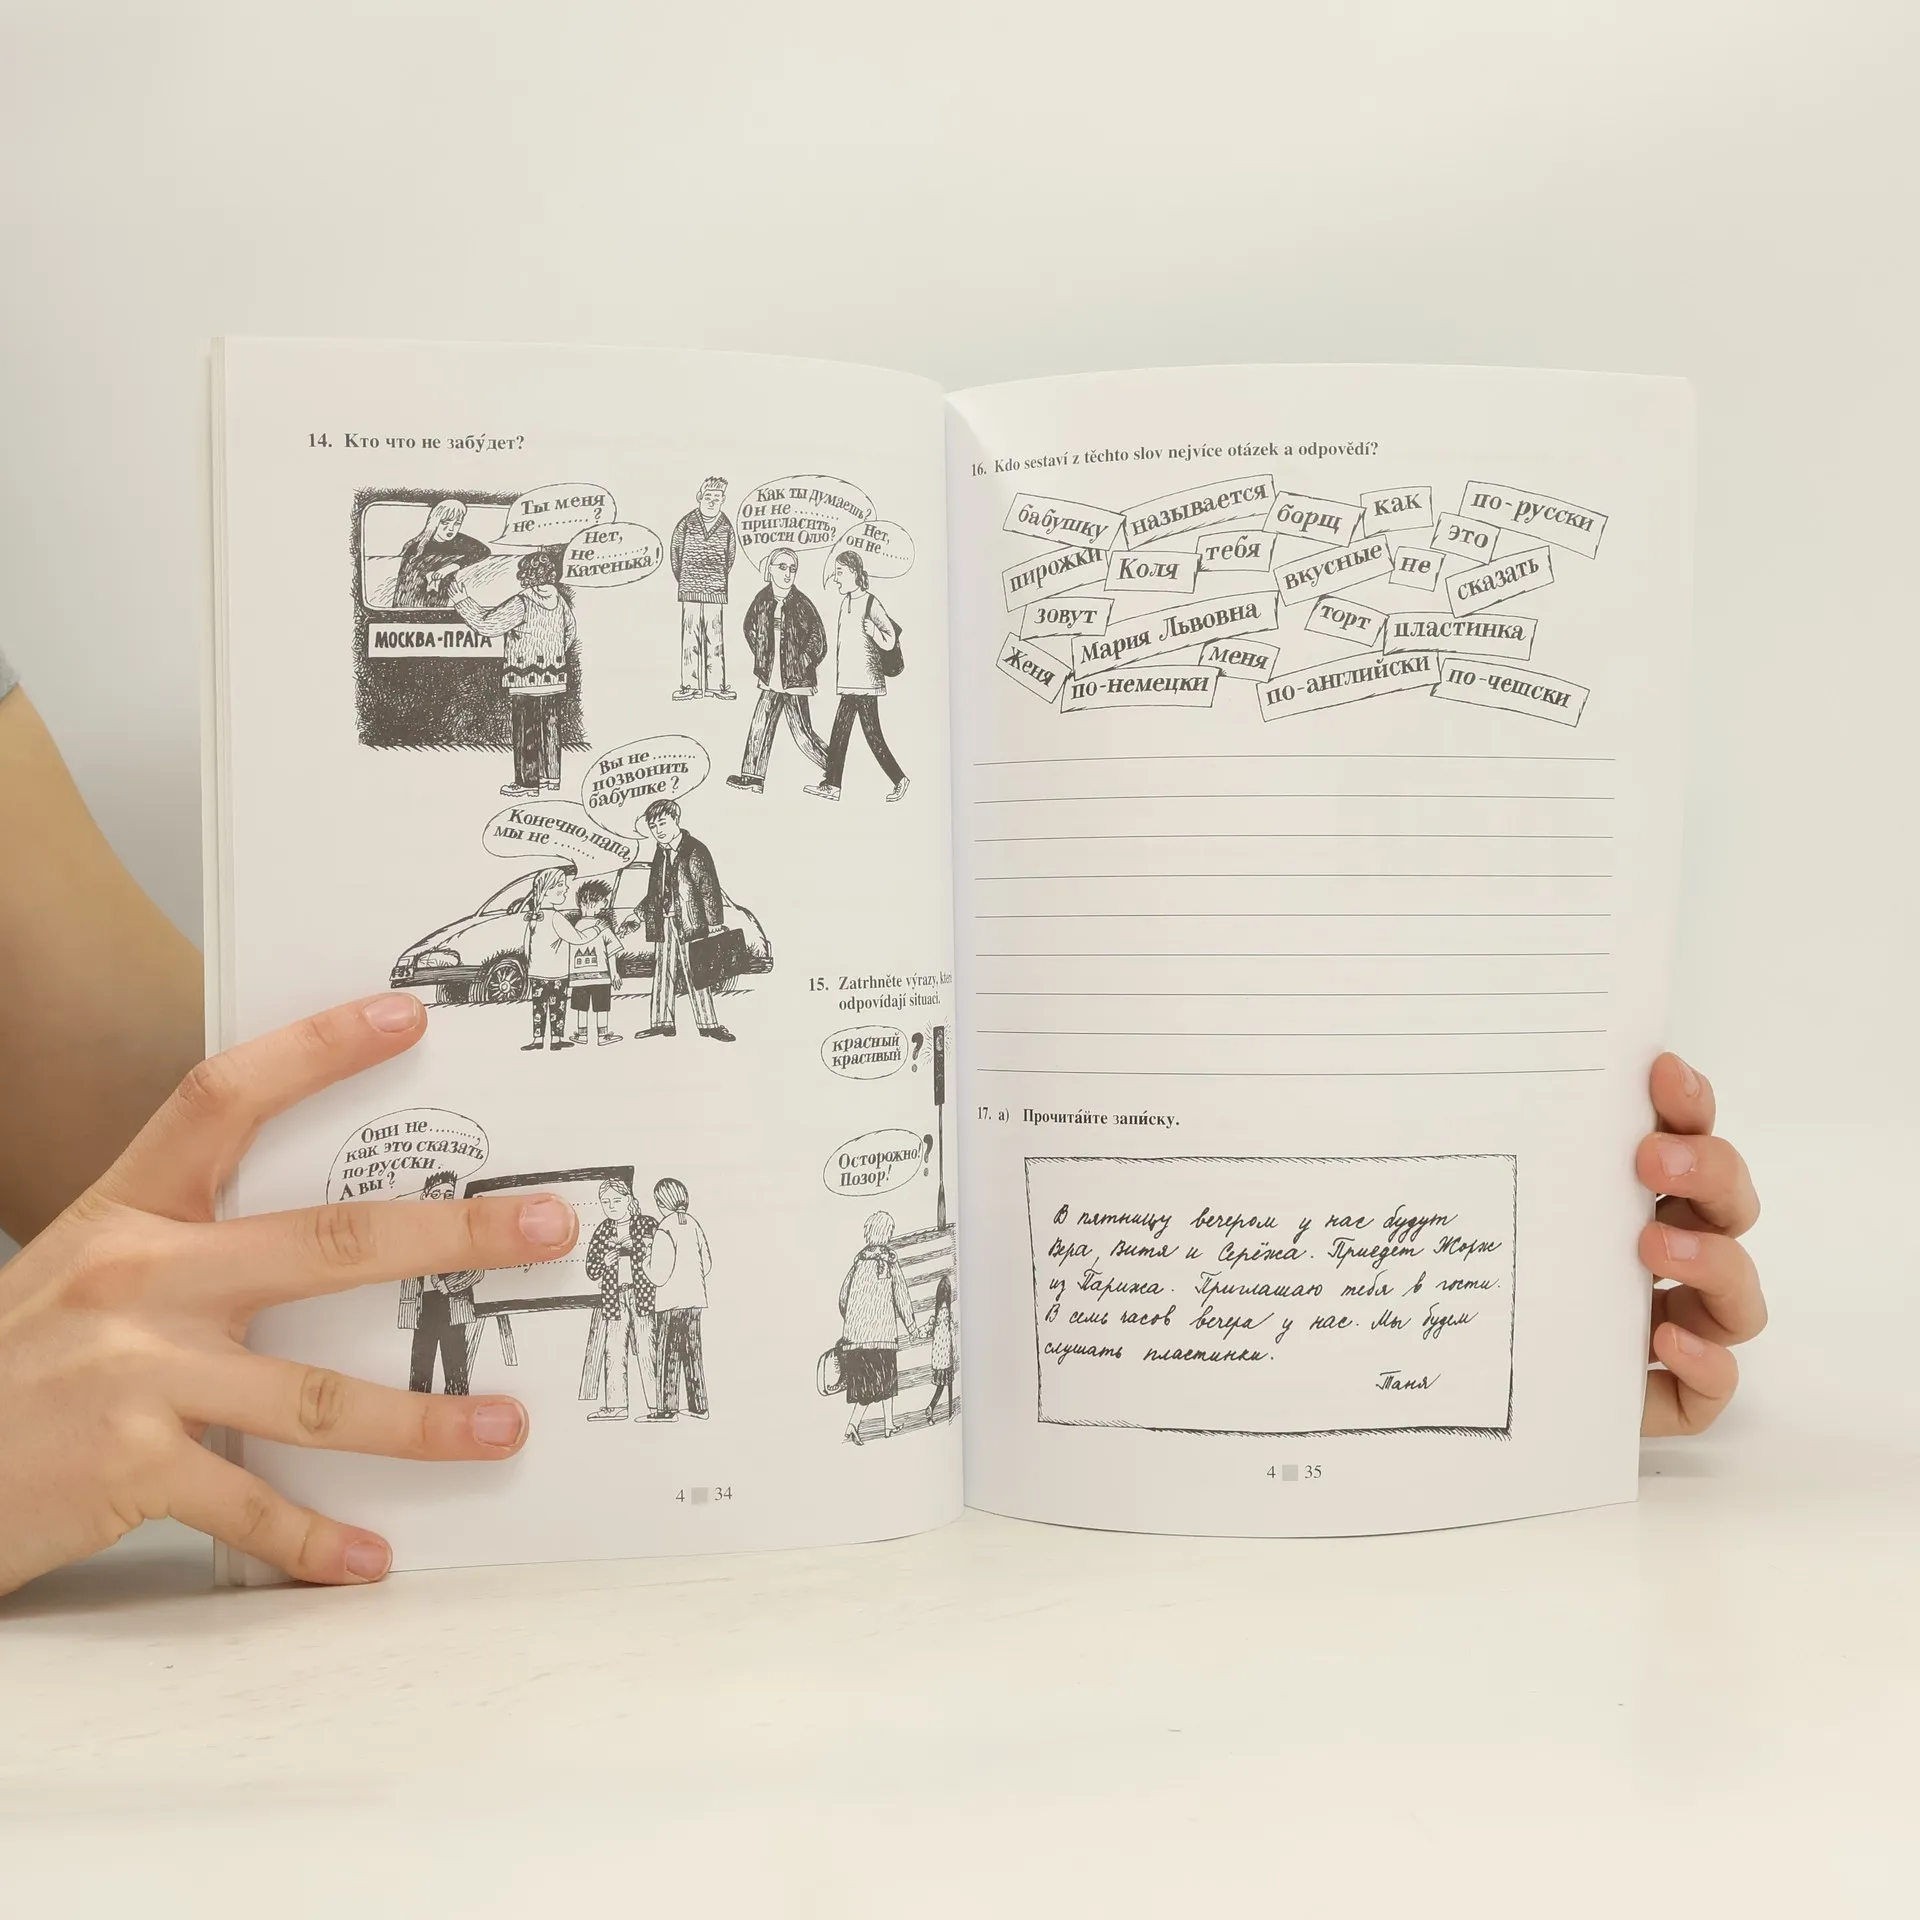 14. Кто что не забу́дет?
Ты меня
не ..........?
Нет,
не ..........,
Катенька!
МОСКВА-ПРАГА
Как ты думаешь?
Он не .........
пригласить
в гости Олю?
Нет,
он не.......
Вы не ........
позвонить
бабушке?
Конечно, папа,
мы не ........
15. Zatrhněte výrazy,
odpovídají situaci.
красный
красивый ?
Осторожно!
Позор! ?
Они не ..........,
как это сказать
по-русски.
А вы?
4 34
16. Kdo sestaví z těchto slov nejvíce otázek a odpovědí?
бабушку называется борщ как по-русски
пирожки Коля тебя вкусные не это сказать
зовут Мария Львовна торт пластинка
Женя по-немецки меня по-английски по-чешски
17. a) Прочита́йте запи́ску.
В пятницу вечером у нас будут
Вера, Витя и Серёжа. Приедет Жорж
из Парижа. Приглашаю тебя в гости.
В семь часов вечера у нас. Мы будем
слушать пластинки.
Таня
4 35